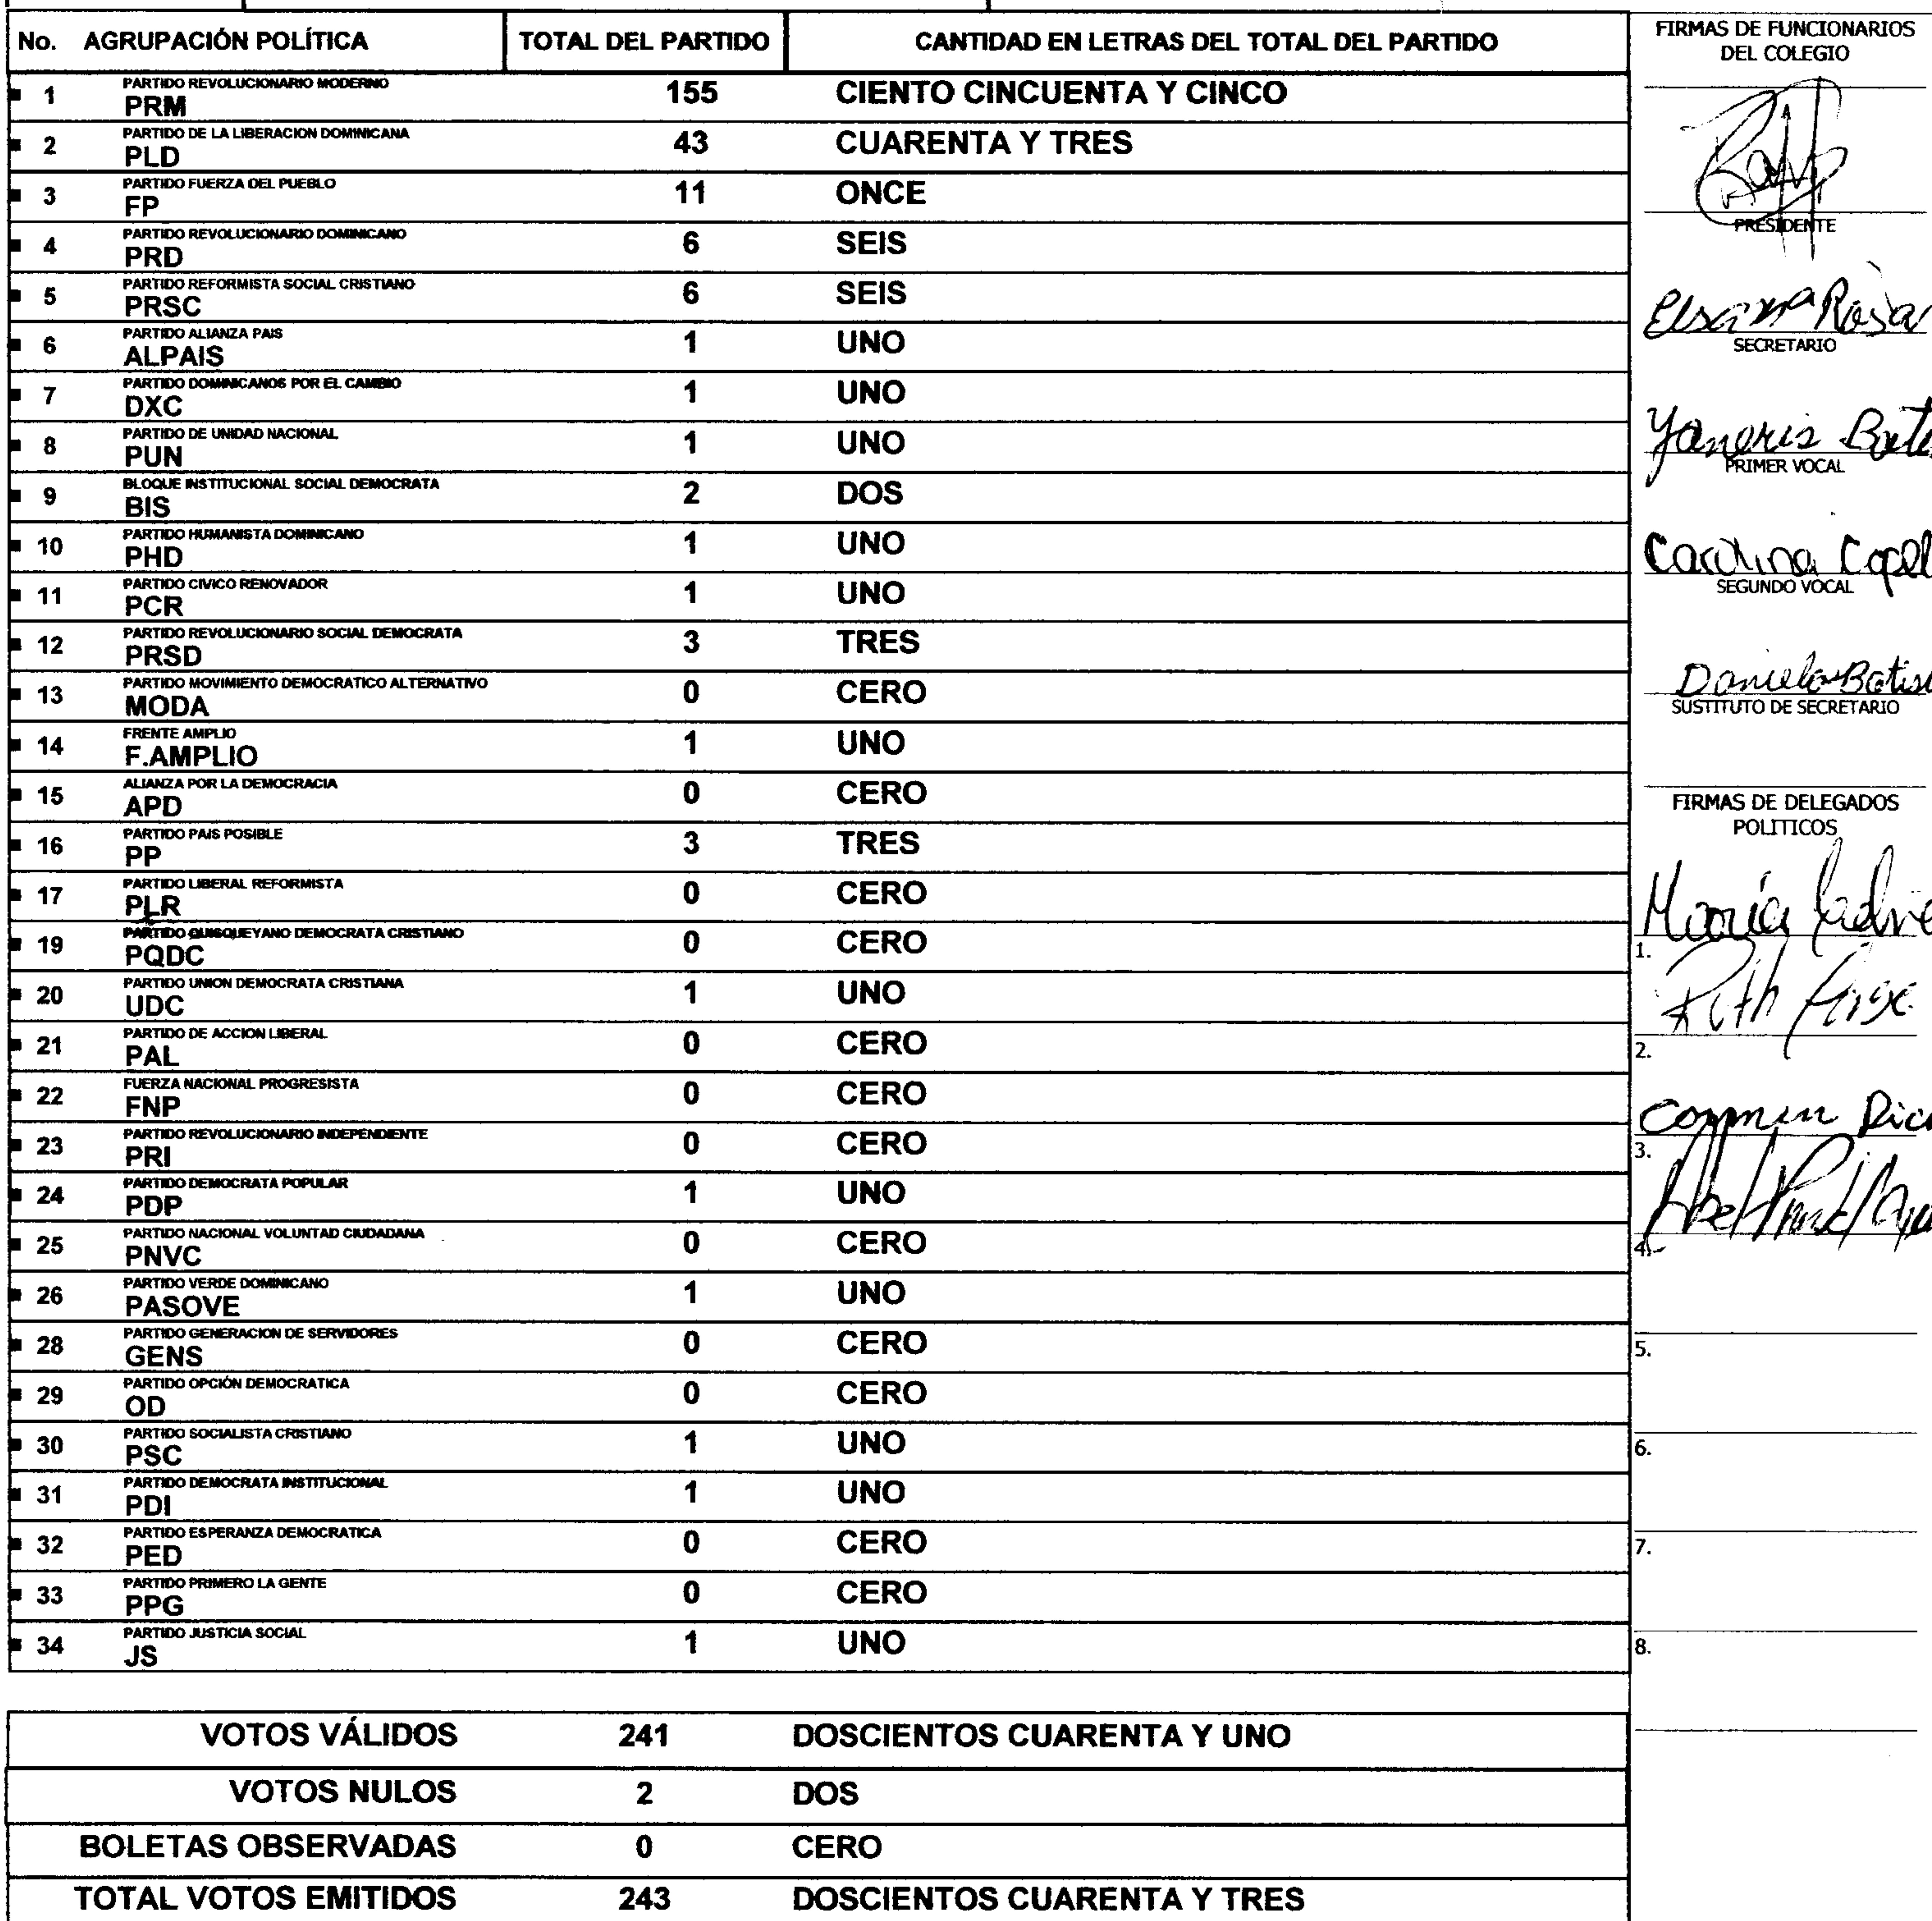 No. AGRUPACIÓN POLÍTICA TOTAL DEL PARTIDO CANTIDAD EN LETRAS DEL TOTAL DEL PARTIDO
1 PARTIDO REVOLUCIONARIO MODERNO
PRM 155 CIENTO CINCUENTA Y CINCO
2 PARTIDO DE LA LIBERACION DOMINICANA
PLD 43 CUARENTA Y TRES
3 PARTIDO FUERZA DEL PUEBLO
FP 11 ONCE
4 PARTIDO REVOLUCIONARIO DOMINICANO
PRD 6 SEIS
5 PARTIDO REFORMISTA SOCIAL CRISTIANO
PRSC 6 SEIS
6 PARTIDO ALIANZA PAIS
ALPAIS 1 UNO
7 PARTIDO DOMINICANOS POR EL CAMBIO
DXC 1 UNO
8 PARTIDO DE UNIDAD NACIONAL
PUN 1 UNO
9 BLOQUE INSTITUCIONAL SOCIAL DEMOCRATA
BIS 2 DOS
10 PARTIDO HUMANISTA DOMINICANO
PHD 1 UNO
11 PARTIDO CIVICO RENOVADOR
PCR 1 UNO
12 PARTIDO REVOLUCIONARIO SOCIAL DEMOCRATA
PRSD 3 TRES
13 PARTIDO MOVIMIENTO DEMOCRATICO ALTERNATIVO
MODA 0 CERO
14 FRENTE AMPLIO
F.AMPLIO 1 UNO
15 ALIANZA POR LA DEMOCRACIA
APD 0 CERO
16 PARTIDO PAIS POSIBLE
PP 3 TRES
17 PARTIDO LIBERAL REFORMISTA
PLR 0 CERO
19 PARTIDO QUISQUEYANO DEMOCRATA CRISTIANO
PQDC 0 CERO
20 PARTIDO UNION DEMOCRATA CRISTIANA
UDC 1 UNO
21 PARTIDO DE ACCION LIBERAL
PAL 0 CERO
22 FUERZA NACIONAL PROGRESISTA
FNP 0 CERO
23 PARTIDO REVOLUCIONARIO INDEPENDIENTE
PRI 0 CERO
24 PARTIDO DEMOCRATA POPULAR
PDP 1 UNO
25 PARTIDO NACIONAL VOLUNTAD CIUDADANA
PNVC 0 CERO
26 PARTIDO VERDE DOMINICANO
PASOVE 1 UNO
28 PARTIDO GENERACION DE SERVIDORES
GENS 0 CERO
29 PARTIDO OPCIÓN DEMOCRATICA
OD 0 CERO
30 PARTIDO SOCIALISTA CRISTIANO
PSC 1 UNO
31 PARTIDO DEMOCRATA INSTITUCIONAL
PDI 1 UNO
32 PARTIDO ESPERANZA DEMOCRATICA
PED 0 CERO
33 PARTIDO PRIMERO LA GENTE
PPG 0 CERO
34 PARTIDO JUSTICIA SOCIAL
JS 1 UNO
VOTOS VÁLIDOS 241 DOSCIENTOS CUARENTA Y UNO
VOTOS NULOS 2 DOS
BOLETAS OBSERVADAS 0 CERO
TOTAL VOTOS EMITIDOS 243 DOSCIENTOS CUARENTA Y TRES
FIRMAS DE FUNCIONARIOS
DEL COLEGIO
PRESIDENTE
SECRETARIO
PRIMER VOCAL
Carolina
SEGUNDO VOCAL
Daniela
SUSTITUTO DE SECRETARIO
FIRMAS DE DELEGADOS
POLITICOS
María
1.
Ruth
2.
Carmen
3.
Abel
4.
5.
6.
7.
8.